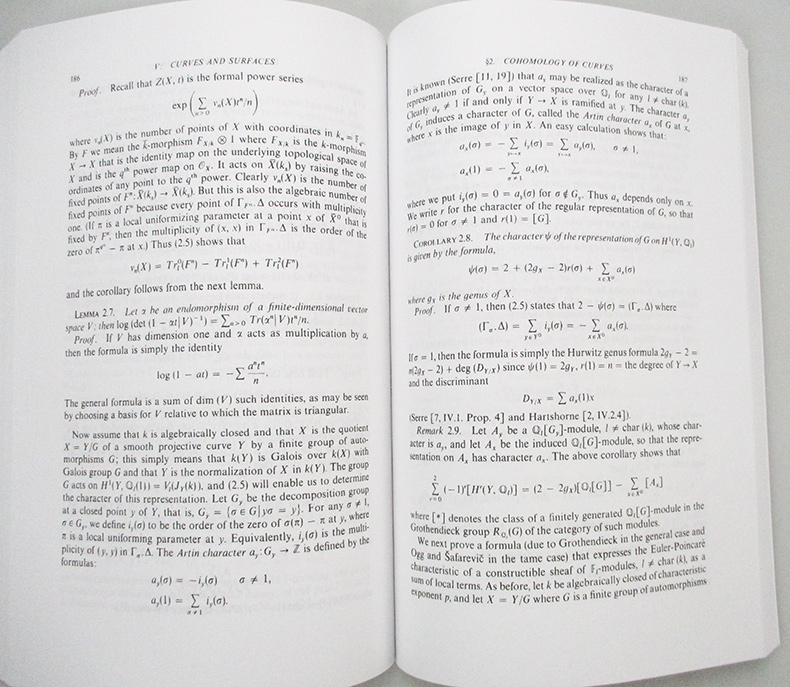 186
V: CURVES AND SURFACES
Proof. Recall that Z(X, t) is the formal power series
exp ( ∑_{n>0} ν_n(X)t^n/n )
where ν_n(X) is the number of points of X with coordinates in k_n =
By F we mean the k̄-morphism F_{X/k} ⊗ 1 where F_{X/k} is the k-morphism
X → X that is the identity map on the underlying topological space of
X and is the q^th power map on 𝒪_X. It acts on X̄(k_n) by raising the co-
ordinates of any point to the q^th power. Clearly ν_n(X) is the number of
fixed points of F^n: X̄(k_s) → X̄(k_s). But this is also the algebraic number of
fixed points of F^n because every point of Γ_{F^n}.Δ occurs with multiplicity
one. (If π is a local uniformizing parameter at a point x of X̄^0 that is
fixed by F^n, then the multiplicity of (x, x) in Γ_{F^n}.Δ is the order of the
zero of π^{q^n} − π at x.) Thus (2.5) shows that
ν_n(X) = Tr_l^0(F^n) − Tr_l^1(F^n) + Tr_l^2(F^n)
and the corollary follows from the next lemma.
LEMMA 2.7. Let α be an endomorphism of a finite-dimensional vector
space V; then log (det (1 − αt|V)^{-1}) = ∑_{n>0} Tr(α^n|V)t^n/n.
Proof. If V has dimension one and α acts as multiplication by a,
then the formula is simply the identity
log (1 − at) = −∑ a^n t^n / n.
The general formula is a sum of dim (V) such identities, as may be seen
by choosing a basis for V relative to which the matrix is triangular.
Now assume that k is algebraically closed and that X is the quotient
X = Y/G of a smooth projective curve Y by a finite group of auto-
morphisms G; this simply means that k(Y) is Galois over k(X) with
Galois group G and that Y is the normalization of X in k(Y). The group
G acts on H^1(Y, ℚ_l(1)) = V_l(J_Y(k)), and (2.5) will enable us to determine
the character of this representation. Let G_y be the decomposition group
at a closed point y of Y, that is, G_y = {σ ∈ G | yσ = y}. For any σ ≠ 1,
σ ∈ G_y, we define i_y(σ) to be the order of the zero of σ(π) − π at y, where
π is a local uniformizing parameter at y. Equivalently, i_y(σ) is the multi-
plicity of (y, y) in Γ_σ.Δ. The Artin character a_y: G_y → ℤ is defined by the
formulas:
a_y(σ) = −i_y(σ) σ ≠ 1,
a_y(1) = ∑_{σ≠1} i_y(σ).
§2. COHOMOLOGY OF CURVES
187
It is known (Serre [11, 19]) that a_y may be realized as the character of a
representation of G_y on a vector space over ℚ_l for any l ≠ char (k).
Clearly a_y ≠ 1 if and only if Y → X is ramified at y. The character a_y
of G_y induces a character of G, called the Artin character a_x of G at x,
where x is the image of y in X. An easy calculation shows that:
a_x(σ) = − ∑_{y↦x} i_y(σ) = ∑_{y↦x} a_y(σ), σ ≠ 1,
a_x(1) = − ∑_{σ≠1} a_x(σ),
where we put i_y(σ) = 0 = a_y(σ) for σ ∉ G_y. Thus a_x depends only on x.
We write r for the character of the regular representation of G, so that
r(σ) = 0 for σ ≠ 1 and r(1) = [G].
COROLLARY 2.8. The character ψ of the representation of G on H^1(Y, ℚ_l)
is given by the formula,
ψ(σ) = 2 + (2g_X − 2)r(σ) + ∑_{x∈X^0} a_x(σ)
where g_X is the genus of X.
Proof. If σ ≠ 1, then (2.5) states that 2 − ψ(σ) = (Γ_σ.Δ) where
(Γ_σ.Δ) = ∑_{y∈Y^0} i_y(σ) = − ∑_{x∈X^0} a_x(σ).
If σ = 1, then the formula is simply the Hurwitz genus formula 2g_Y − 2 =
n(2g_X − 2) + deg (D_{Y/X}) since ψ(1) = 2g_Y, r(1) = n = the degree of Y → X
and the discriminant
D_{Y/X} = ∑ a_x(1)x
(Serre [7, IV.1. Prop. 4] and Hartshorne [2, IV.2.4]).
Remark 2.9. Let A_y be a ℚ_l[G_y]-module, l ≠ char (k), whose char-
acter is a_y, and let A_x be the induced ℚ_l[G]-module, so that the repre-
sentation on A_x has character a_x. The above corollary shows that
∑_{r=0}^{2} (−1)^r[H^r(Y, ℚ_l)] = (2 − 2g_X)[ℚ_l[G]] − ∑_{x∈X^0} [A_x]
where [*] denotes the class of a finitely generated ℚ_l[G]-module in the
Grothendieck group R_{ℚ_l}(G) of the category of such modules.
We next prove a formula (due to Grothendieck in the general case and
Ogg and Šafarevič in the tame case) that expresses the Euler-Poincaré
characteristic of a constructible sheaf of 𝔽_l-modules, l ≠ char (k), as a
sum of local terms. As before, let k be algebraically closed of characteristic
exponent p, and let X = Y/G where G is a finite group of automorphisms